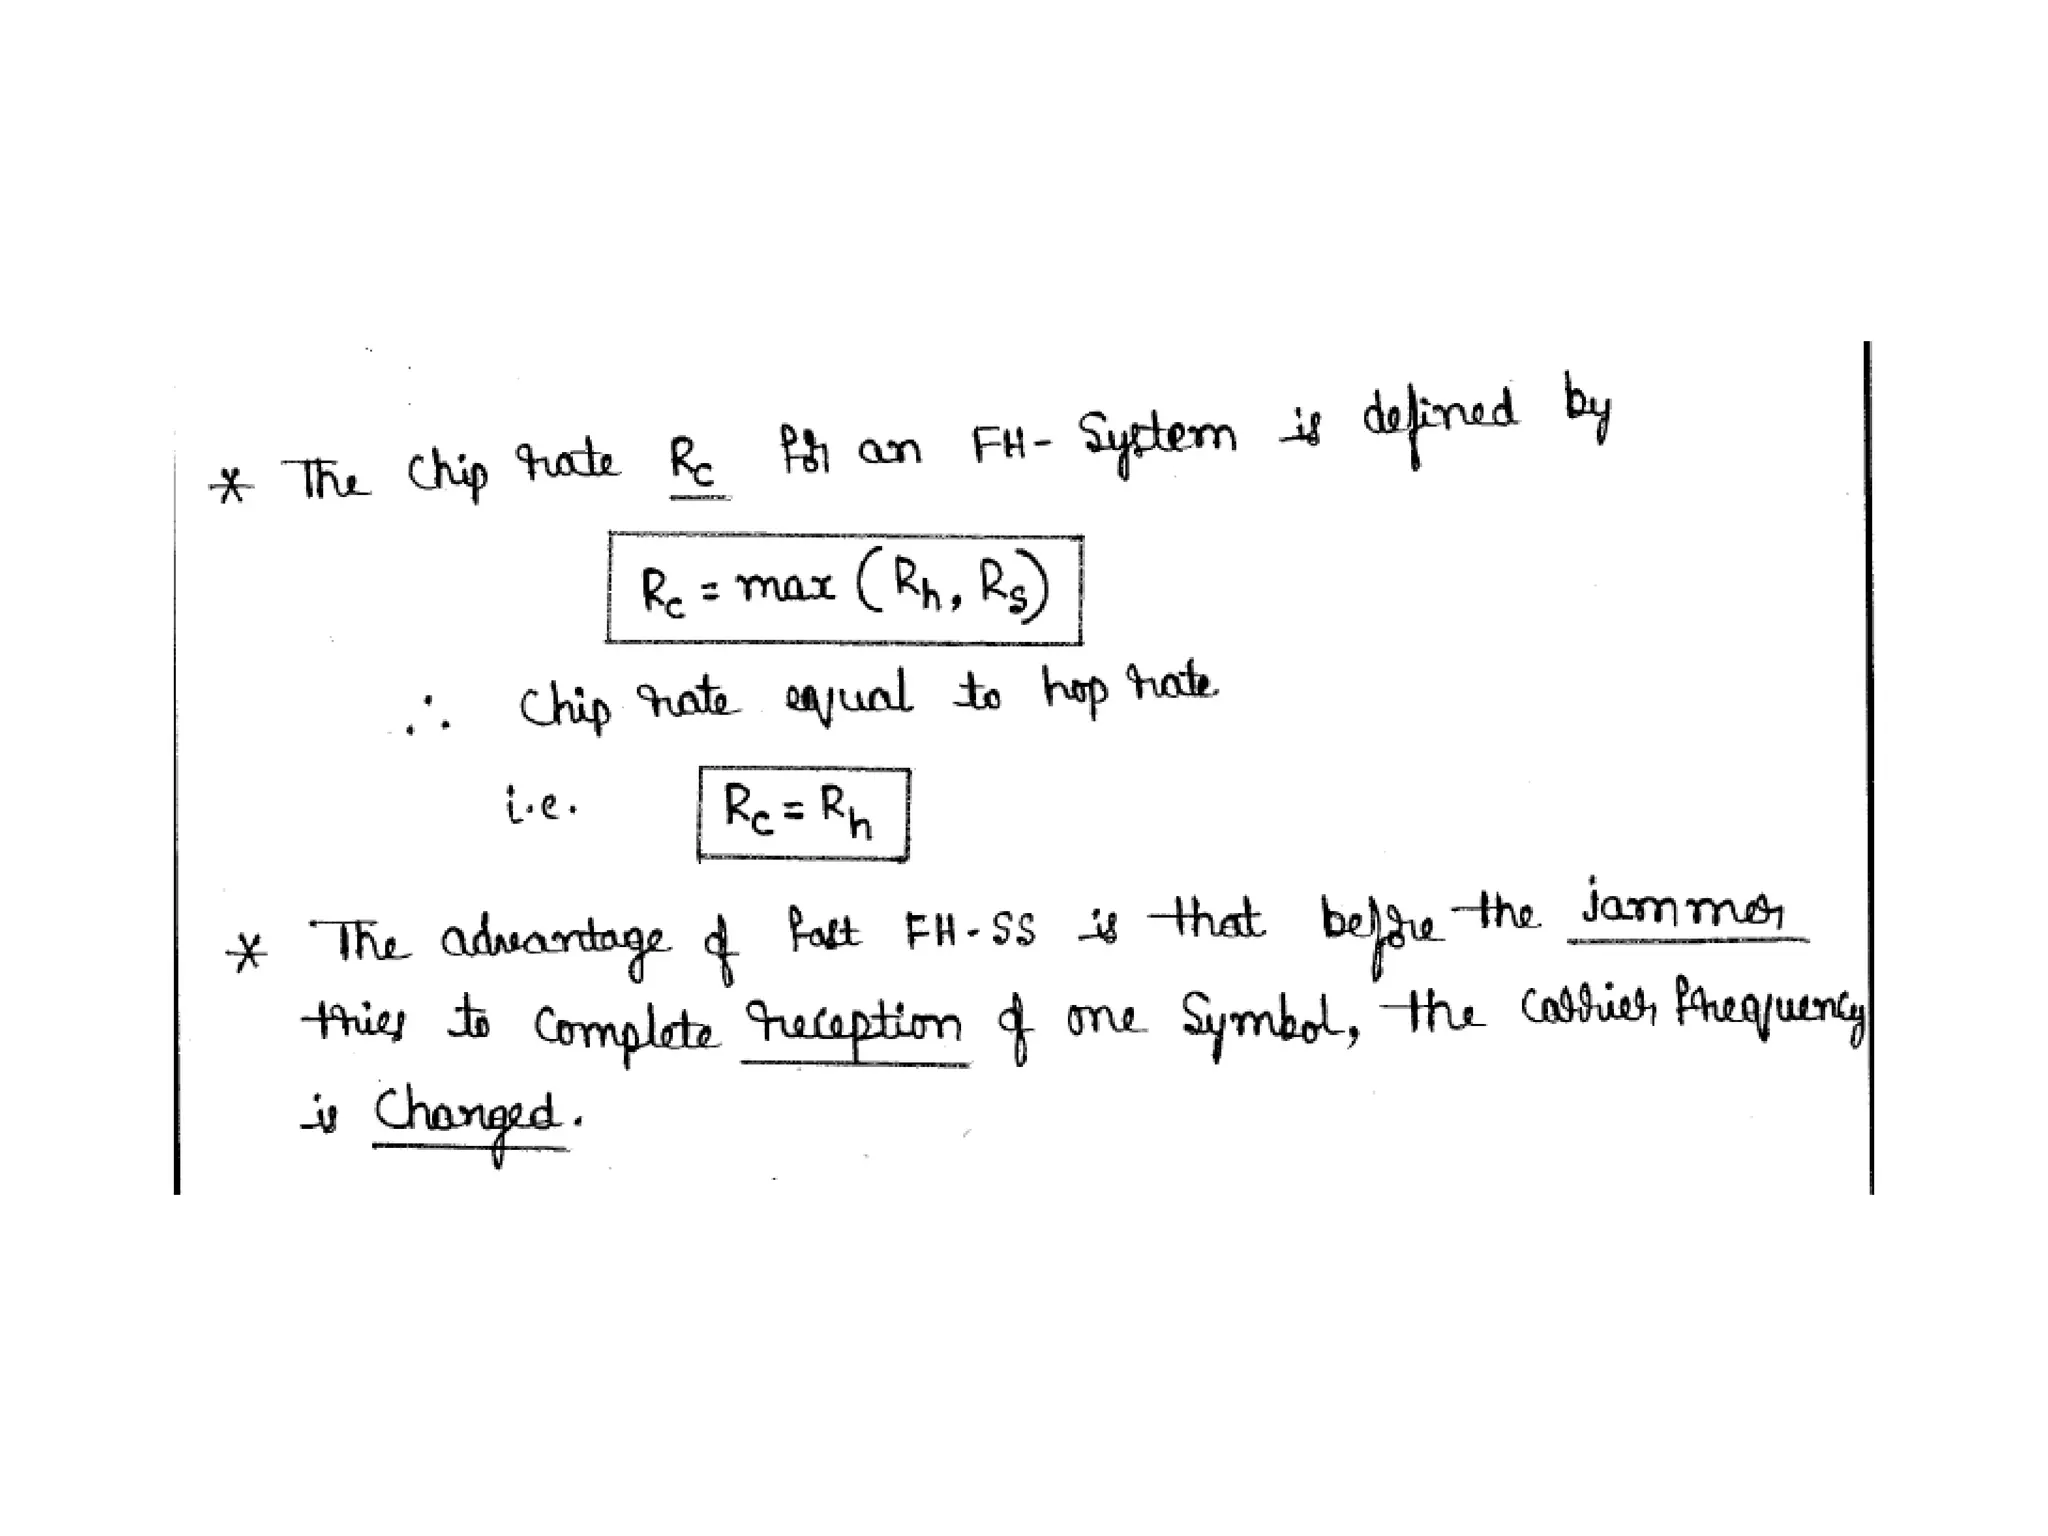 * The Chip rate Rc for an FH- System is defined by
Rc = max (Rh, Rs)
∴ Chip rate equal to hop rate
i.e. Rc = Rh
* The advantage of fast FH-SS is that before the jammer
tries to Complete reception of one Symbol, the carrier frequency
is Changed.